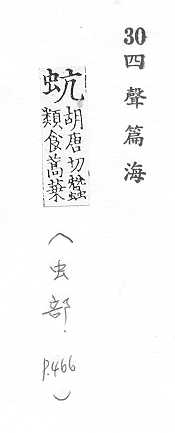 30 四聲篇海
蚢 胡唐切蠶
類食蒿葉
（虫部. p.466）